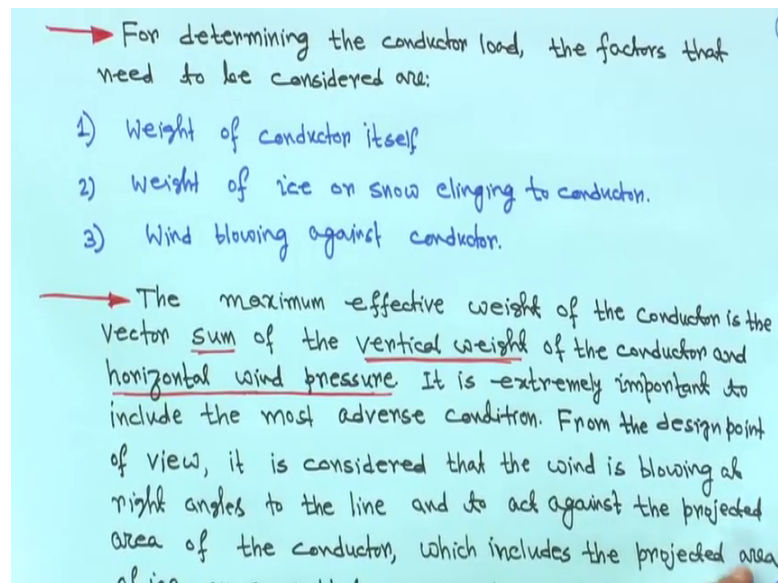 For determining the conductor load, the factors that
need to be considered are:
1) Weight of conductor itself
2) Weight of ice or snow clinging to conductor.
3) Wind blowing against conductor.
The maximum effective weight of the conductor is the
vector sum of the vertical weight of the conductor and
horizontal wind pressure. It is extremely important to
include the most adverse condition. From the design point
of view, it is considered that the wind is blowing at
right angles to the line and to act against the projected
area of the conductor, which includes the projected area
of ice